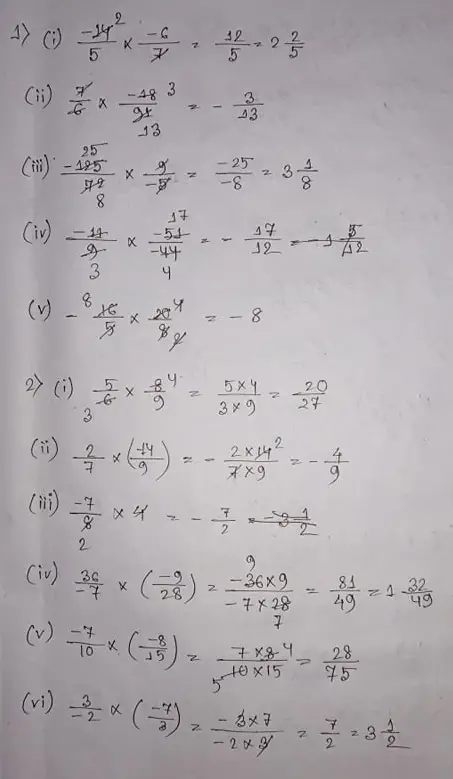 1) (i) -14/5 2 × -6/7 = 12/5 = 2 2/5
(ii) 7/6 × -18/91 3 13 = - 3/13
(iii) 25 -125/72 8 × 9/-5 = -25/-8 = 3 1/8
(iv) -11/9 3 × 17 -51/-44 4 = - 17/12 = -1 5/12
(v) - 8 16/5 × 20/8 4 2 = - 8
2) (i) 5/6 3 × 8/9 4 = 5×4/3×9 = 20/27
(ii) 2/7 × (-14/9) = - 2×14/7×9 2 = - 4/9
(iii) -7/8 2 × 4 = - 7/2 = -3 1/2
(iv) 36/-7 × (-9/28) = 9 -36×9/-7×28 7 = 81/49 = 1 32/49
(v) -7/10 × (-8/15) = 7×8/10×15 4 5 = 28/75
(vi) 3/-2 × (-7/3) = -3×7/-2×3 = 7/2 = 3 1/2